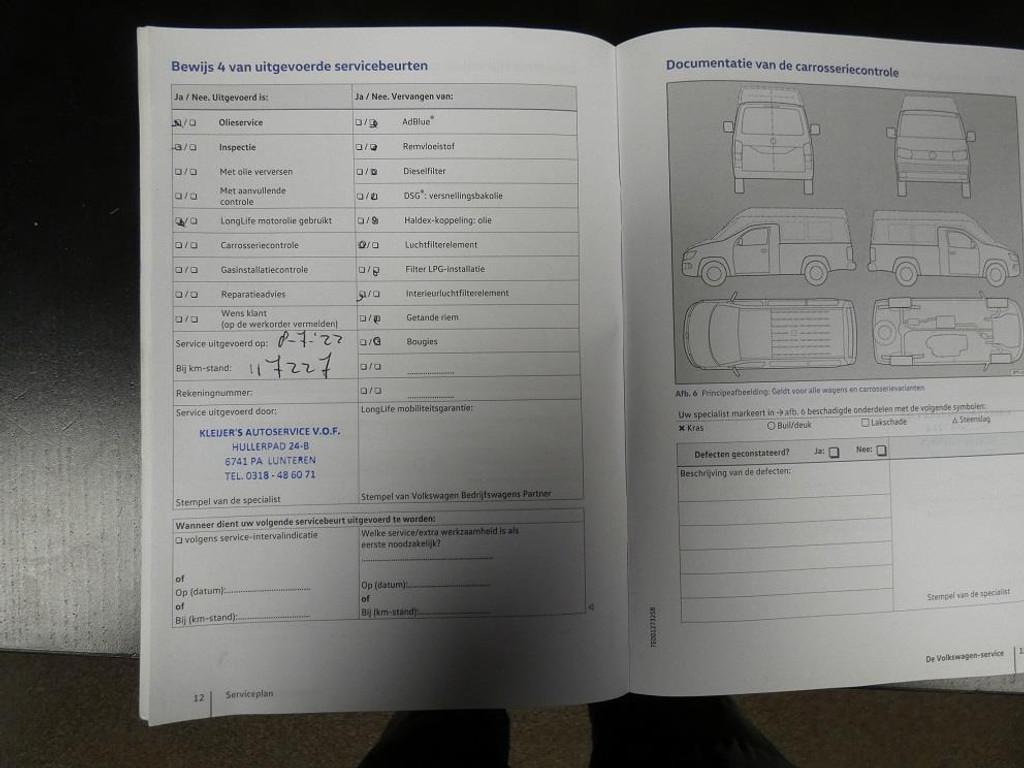 Bewijs 4 van uitgevoerde servicebeurten
Ja / Nee. Uitgevoerd is:
Ja / Nee. Vervangen van:
Olieservice
AdBlue®
Inspectie
Remvloeistof
Met olie verversen
Dieselfilter
Met aanvullende
controle
DSG®: versnellingsbakolie
LongLife motorolie gebruikt
Haldex-koppeling: olie
Carrosseriecontrole
Luchtfilterelement
Gasinstallatiecontrole
Filter LPG-installatie
Reparatieadvies
Interieurluchtfilterelement
Wens klant
(op de werkorder vermelden)
Getande riem
Service uitgevoerd op: 8-7-'22
Bougies
Bij km-stand: 117227
Rekeningnummer:
Service uitgevoerd door:
LongLife mobiliteitsgarantie:
KLEIJER'S AUTOSERVICE V.O.F.
HULLERPAD 24-B
6741 PA LUNTEREN
TEL. 0318 - 48 60 71
Stempel van de specialist
Stempel van Volkswagen Bedrijfswagens Partner
Wanneer dient uw volgende servicebeurt uitgevoerd te worden:
volgens service-intervalindicatie
Welke service/extra werkzaamheid is als
eerste noodzakelijk?
of
Op (datum):
of
Bij (km-stand):
Op (datum):
of
Bij (km-stand):
12 Serviceplan
Documentatie van de carrosseriecontrole
Afb. 6 Principeafbeelding: Geldt voor alle wagens en carrosserievarianten
Uw specialist markeert in → afb. 6 beschadigde onderdelen met de volgende symbolen:
Kras
Buil/deuk
Lakschade
Steenslag
Defecten geconstateerd? Ja: Nee:
Beschrijving van de defecten:
Stempel van de specialist
De Volkswagen-service